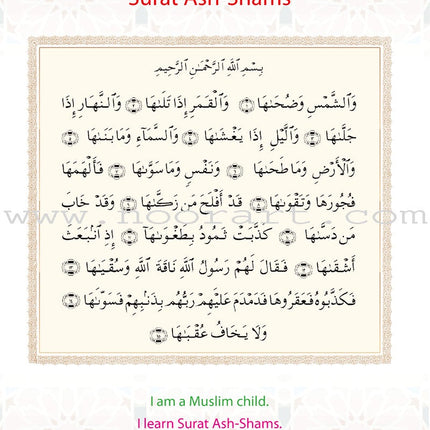 Surat Ash-Shams
بِسْمِ ٱللَّهِ ٱلرَّحْمَٰنِ ٱلرَّحِيمِ
وَٱلشَّمْسِ وَضُحَىٰهَا ١ وَٱلْقَمَرِ إِذَا تَلَىٰهَا ٢ وَٱلنَّهَارِ إِذَا
جَلَّىٰهَا ٣ وَٱلَّيْلِ إِذَا يَغْشَىٰهَا ٤ وَٱلسَّمَآءِ وَمَا بَنَىٰهَا ٥
وَٱلْأَرْضِ وَمَا طَحَىٰهَا ٦ وَنَفْسٍ وَمَا سَوَّىٰهَا ٧ فَأَلْهَمَهَا
فُجُورَهَا وَتَقْوَىٰهَا ٨ قَدْ أَفْلَحَ مَن زَكَّىٰهَا ٩ وَقَدْ خَابَ
www.noorart.com
مَن دَسَّىٰهَا ١٠ كَذَّبَتْ ثَمُودُ بِطَغْوَىٰهَآ ١١ إِذِ ٱنۢبَعَثَ
أَشْقَىٰهَا ١٢ فَقَالَ لَهُمْ رَسُولُ ٱللَّهِ نَاقَةَ ٱللَّهِ وَسُقْيَٰهَا ١٣
فَكَذَّبُوهُ فَعَقَرُوهَا فَدَمْدَمَ عَلَيْهِمْ رَبُّهُم بِذَنۢبِهِمْ فَسَوَّىٰهَا ١٤
وَلَا يَخَافُ عُقْبَٰهَا ١٥
I am a Muslim child.
I learn Surat Ash-Shams.